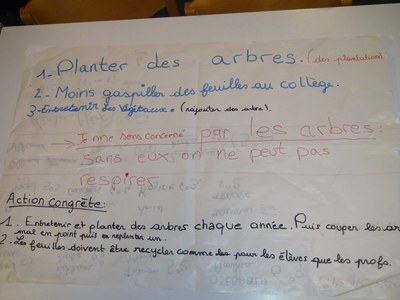 1-Planter des arbres. (des plantation)
2- Moins gaspiller des feuilles au collège.
3-Entretenir les végétaux. (rajouter des arbre).
Je me sens concerné par les arbres:
sans eux on ne peut pas
respirer
Action congrète:
1. Entretenir et planter des arbres chaque année. Puis couper les ar
mal en point puis en replanter un.
2. Les feuilles doivent être recycler comme les pour les élèves que les profs.